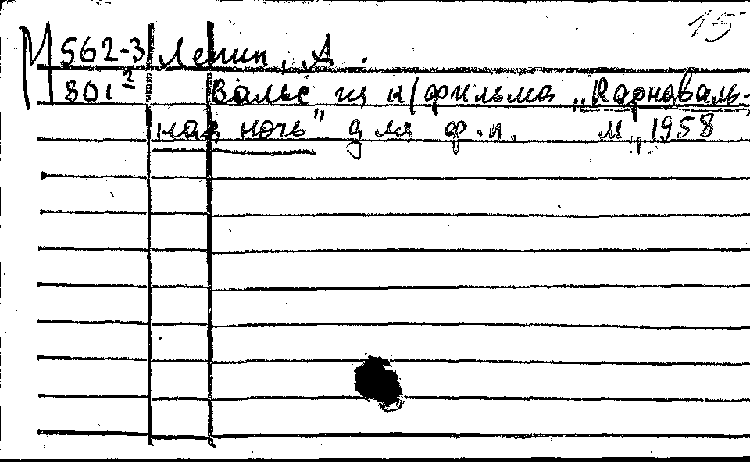 15
М 562-3 Лепин, А.
801² Вальс из к/фильма „Карнаваль-
ная ночь" для ф.п. М., 1958